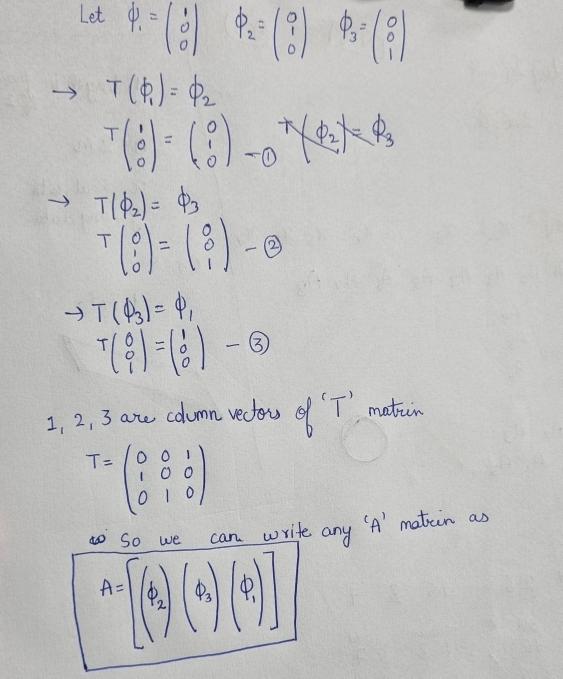 Let ϕ₁ = (1 0 0) ϕ₂ = (0 1 0) ϕ₃ = (0 0 1)
→ T(ϕ₁) = ϕ₂
T(1 0 0) = (0 1 0) - ① T(ϕ₂) = ϕ₃
→ T(ϕ₂) = ϕ₃
T(0 1 0) = (0 0 1) - ②
→ T(ϕ₃) = ϕ₁
T(0 0 1) = (1 0 0) - ③
1, 2, 3 are column vectors of 'T' matrix
T = (0 0 1
1 0 0
0 1 0)
So we can write any 'A' matrix as
A = [(ϕ₂) (ϕ₃) (ϕ₁)]